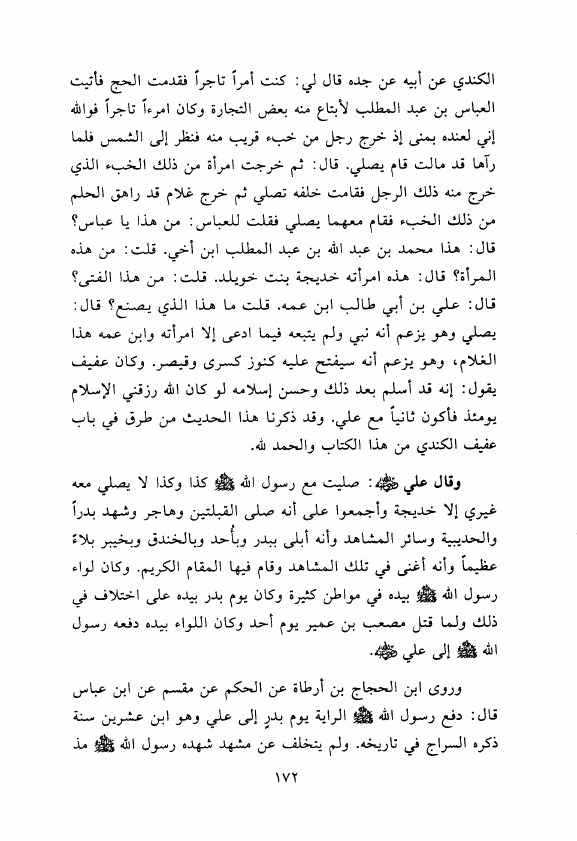 الكندي عن أبيه عن جده قال لي: كنت أمرأ تاجراً فقدمت الحج فأتيت
العباس بن عبد المطلب لأبتاع منه بعض التجارة وكان امرءاً تاجراً فوالله
إني لعنده بمنى إذ خرج رجل من خبء قريب منه فنظر إلى الشمس فلما
رآها قد مالت قام يصلي. قال: ثم خرجت امرأة من ذلك الخبء الذي
خرج منه ذلك الرجل فقامت خلفه تصلي ثم خرج غلام قد راهق الحلم
من ذلك الخبء فقام معهما يصلي فقلت للعباس: من هذا يا عباس؟
قال: هذا محمد بن عبد الله بن عبد المطلب ابن أخي. قلت: من هذه
المرأة؟ قال: هذه امرأته خديجة بنت خويلد. قلت: من هذا الفتى؟
قال: علي بن أبي طالب ابن عمه. قلت ما هذا الذي يصنع؟ قال:
يصلي وهو يزعم أنه نبي ولم يتبعه فيما ادعى إلا امرأته وابن عمه هذا
الغلام، وهو يزعم أنه سيفتح عليه كنوز كسرى وقيصر. وكان عفيف
يقول: إنه قد أسلم بعد ذلك وحسن إسلامه لو كان الله رزقني الإسلام
يومئذ فأكون ثانياً مع علي. وقد ذكرنا هذا الحديث من طرق في باب
عفيف الكندي من هذا الكتاب والحمد لله.
وقال علي رضي الله عنه: صليت مع رسول الله ﷺ كذا وكذا لا يصلي معه
غيري إلا خديجة وأجمعوا على أنه صلى القبلتين وهاجر وشهد بدراً
والحديبية وسائر المشاهد وأنه أبلى ببدر وبأُحد وبالخندق وبخيبر بلاءً
عظيماً وأنه أغنى في تلك المشاهد وقام فيها المقام الكريم. وكان لواء
رسول الله ﷺ بيده في مواطن كثيرة وكان يوم بدر بيده على اختلاف في
ذلك ولما قتل مصعب بن عمير يوم أحد وكان اللواء بيده دفعه رسول
الله ﷺ إلى علي رضي الله عنه.
وروى ابن الحجاج بن أرطاة عن الحكم عن مقسم عن ابن عباس
قال: دفع رسول الله ﷺ الراية يوم بدرٍ إلى علي وهو ابن عشرين سنة
ذكره السراج في تاريخه. ولم يتخلف عن مشهد شهده رسول الله ﷺ مذ
١٧٢